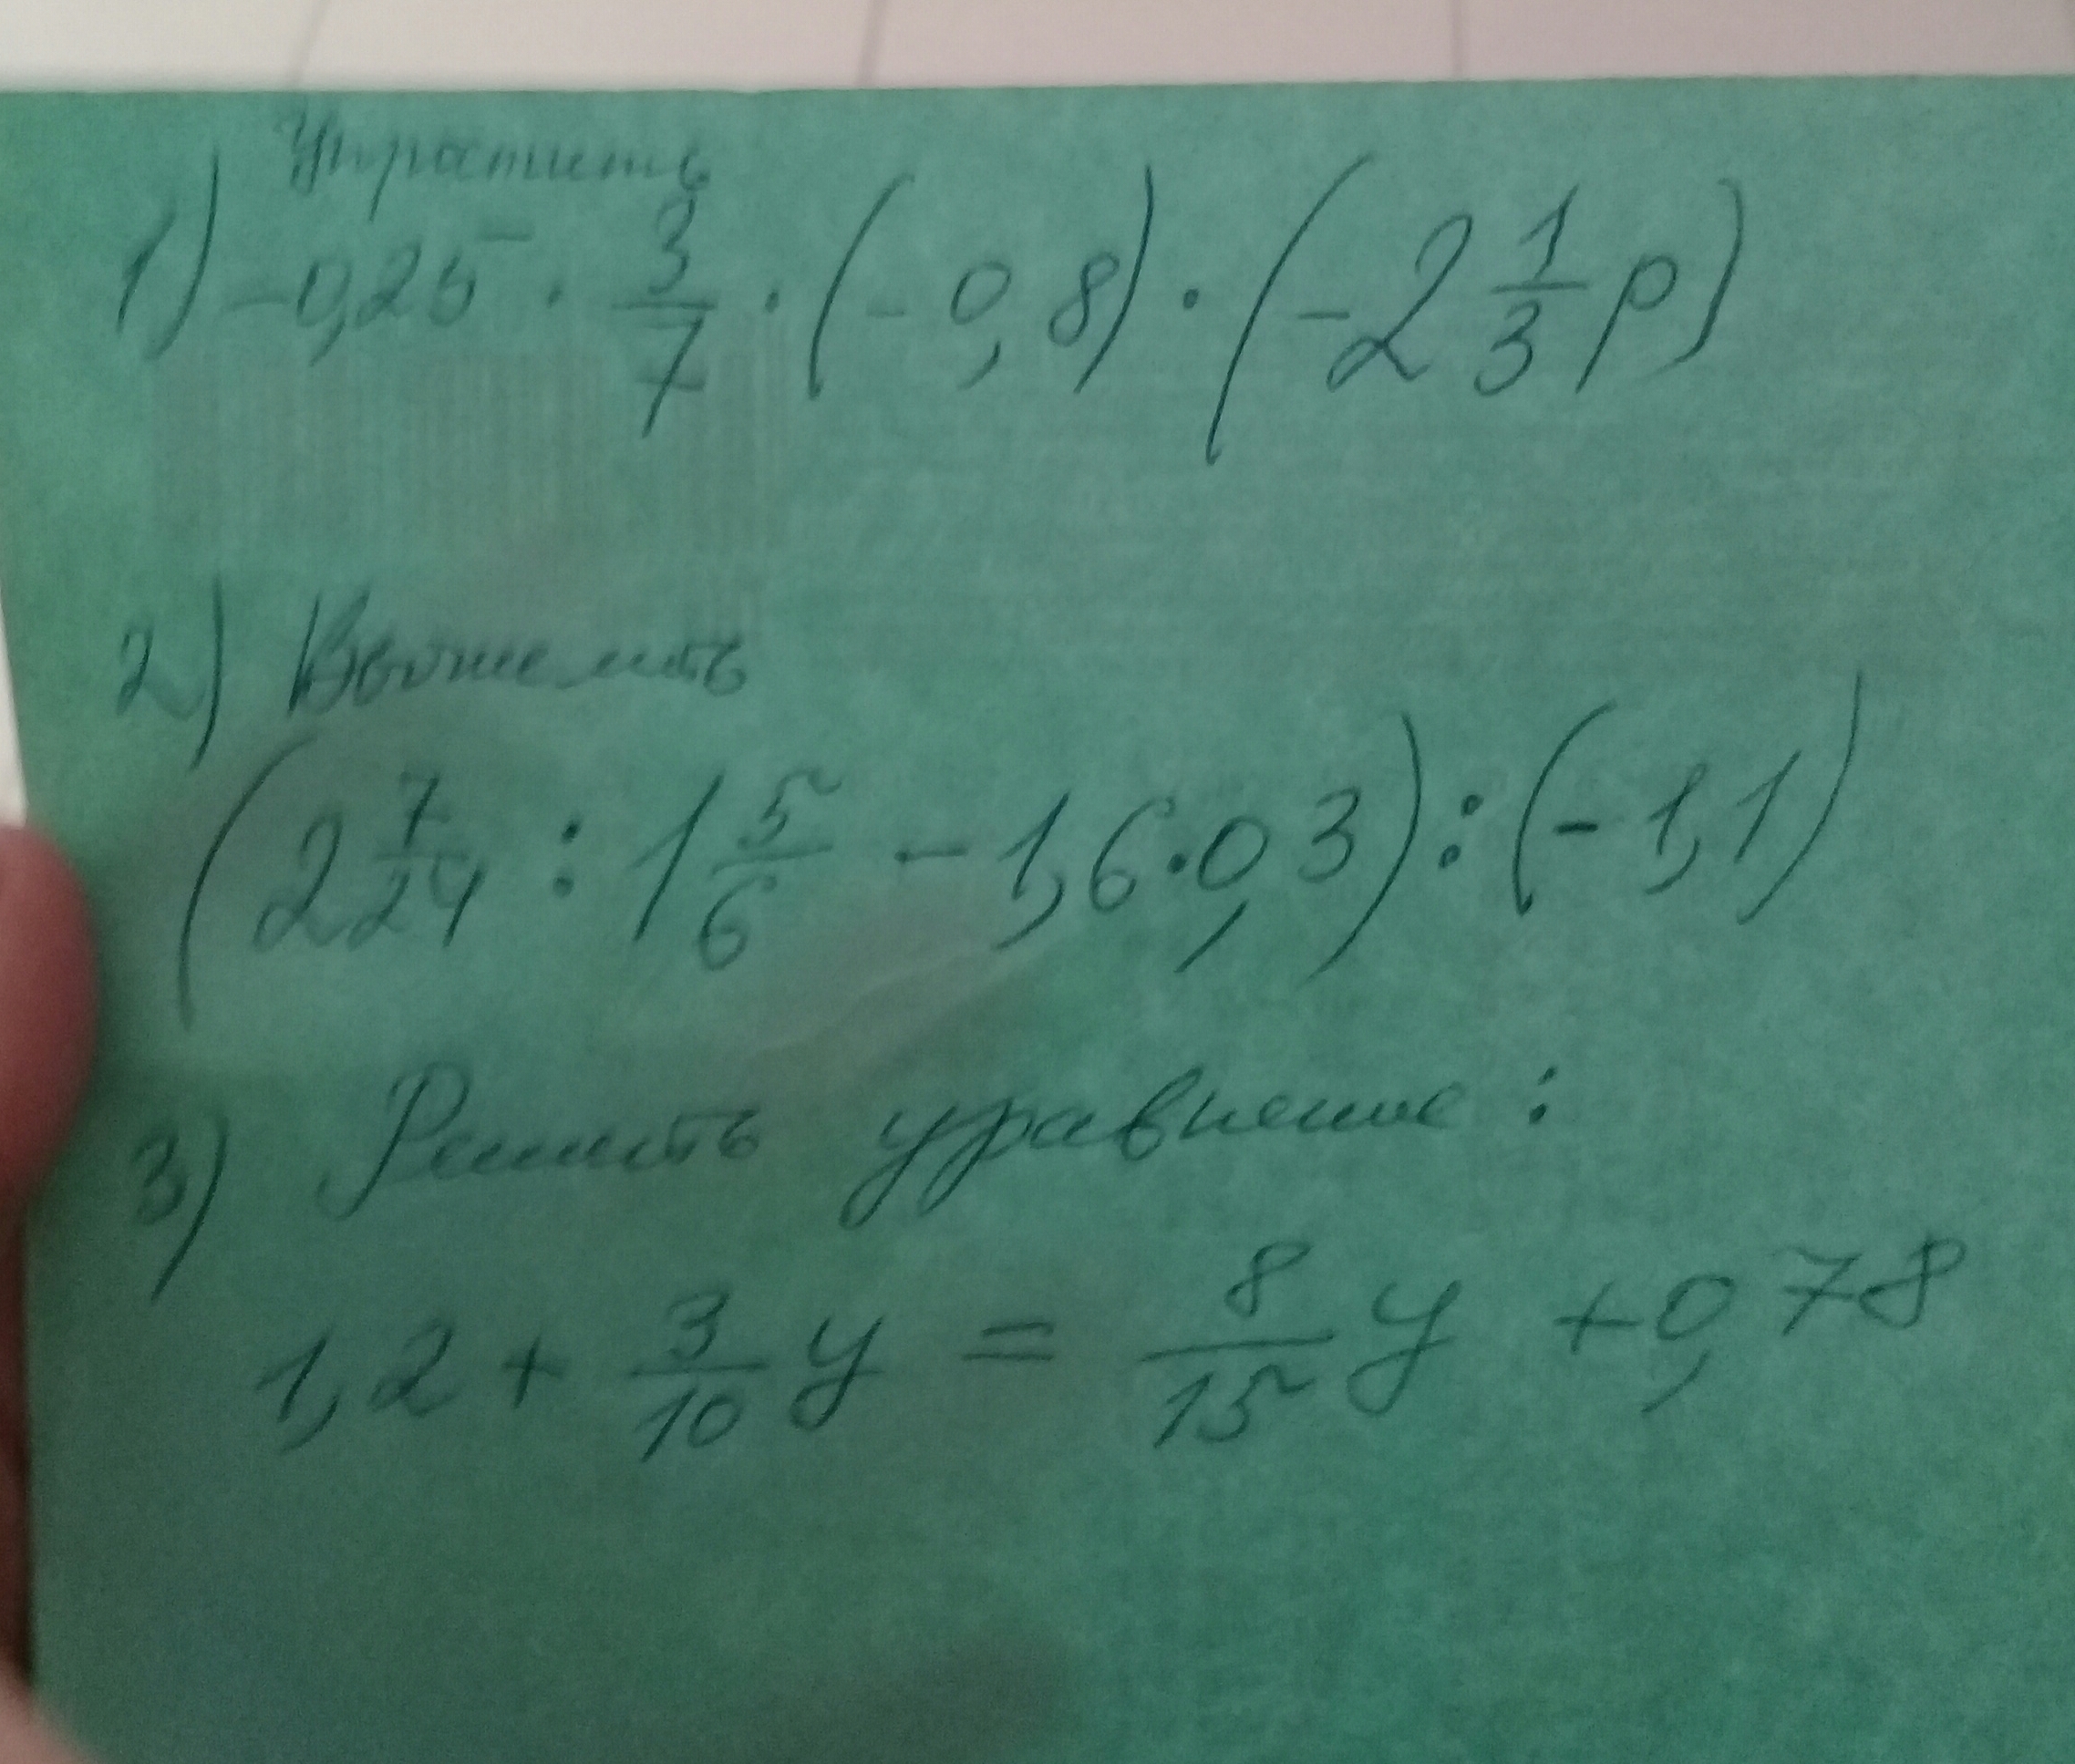 Упростить
1) -0,25 · 3/7 · (-0,8) · (-2 1/3 p)
2) Вычислить
(2 7/24 : 1 5/6 - 1,6 · 0,3) : (-1,1)
3) Решить уравнение :
1,2 + 3/10 y = 8/15 y + 0,78